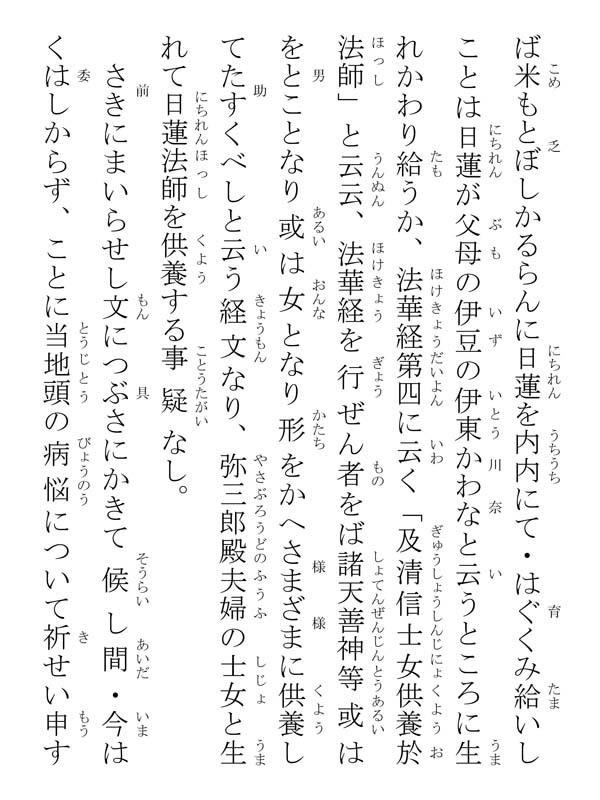 ば米もとぼしかるらんに日蓮を内内にて・はぐくみ給いし
ことは日蓮が父母の伊豆の伊東かわなと云うところに生
れかわり給うか、法華経第四に云く「及清信士女供養於
法師」と云云、法華経を行ぜん者をば諸天善神等或は
をとことなり或は女となり形をかへさまざまに供養し
てたすくべしと云う経文なり、弥三郎殿夫婦の士女と生
れて日蓮法師を供養する事疑なし。
さきにまいらせし文につぶさにかきて候し間・今は
くはしからず、ことに当地頭の病悩について祈せい申す